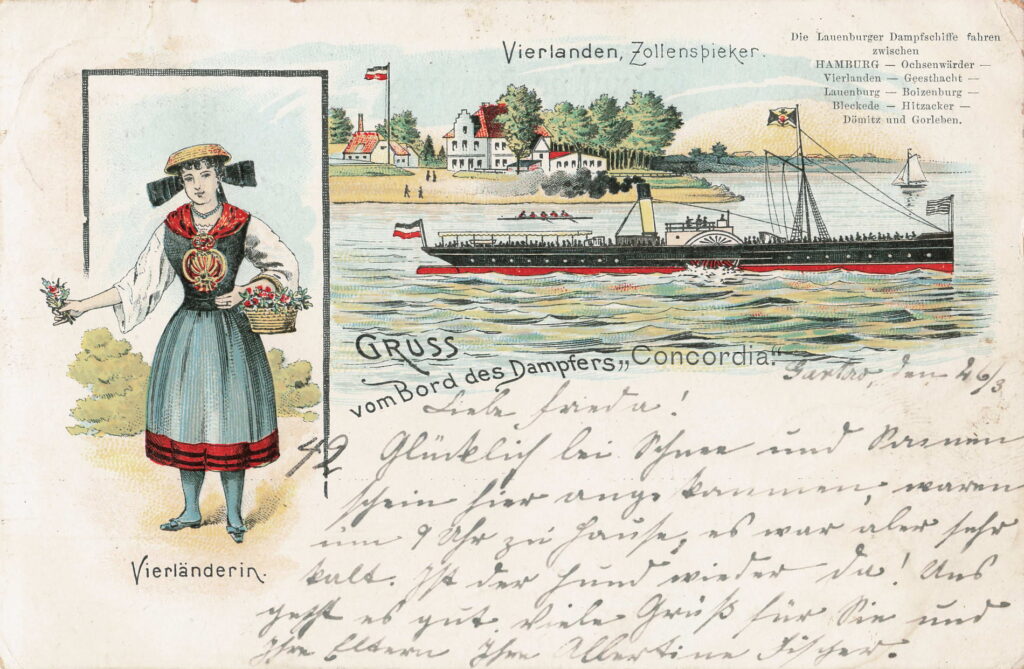 Vierlanden, Zollenspieker.
Die Lauenburger Dampfschiffe fahren
zwischen
HAMBURG — Ochsenwärder —
Vierlanden — Geesthacht —
Lauenburg — Boizenburg —
Bleckede — Hitzacker —
Dömitz und Gorleben.
GRUSS
vom Bord des Dampfers „Concordia."
Vierländerin.
Gartow, den 26/3
Liebe Frieda!
42 Glücklich bei Schnee und
schein hier angekommen, waren
um 9 Uhr zu Hause, es war aber sehr
kalt. Ist der Hund wieder da! Uns
geht es gut. Viele Grüß für Sie und
Ihre Eltern Ihre Albertine Fischer.